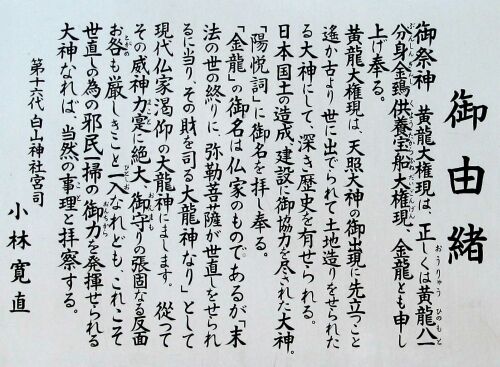 御由緒
御祭神　黄龍大権現は、正しくは黄龍八
分身金鵄供養宝船大権現、金龍とも申し
上げ奉る。
黄龍大権現は、天照大神の御出現に先立つこと
遙か古より世に出でられて土地造りをせられた
る大神にして、深き歴史を有せられる。
日本国土の造成、建設に御協力を尽された大神。
「陽悦詞」に御名を拝し奉る。
「金龍」の御名は仏家のものであるが「末
法の世の終りに、弥勒菩薩が世直しをせられ
るに当り、その財を司る大龍神なり」として
現代仏家渇仰の大龍神にまします。従つて
その威神力寔に絶大、御守りの張固なる反面
お咎も厳しきこと一入なれども、これこそ
世直しの為の邪民一掃の御力を発揮せられる
大神なれば、当然の事理と拝察する。
第十六代　白山神社宮司
小林寛直